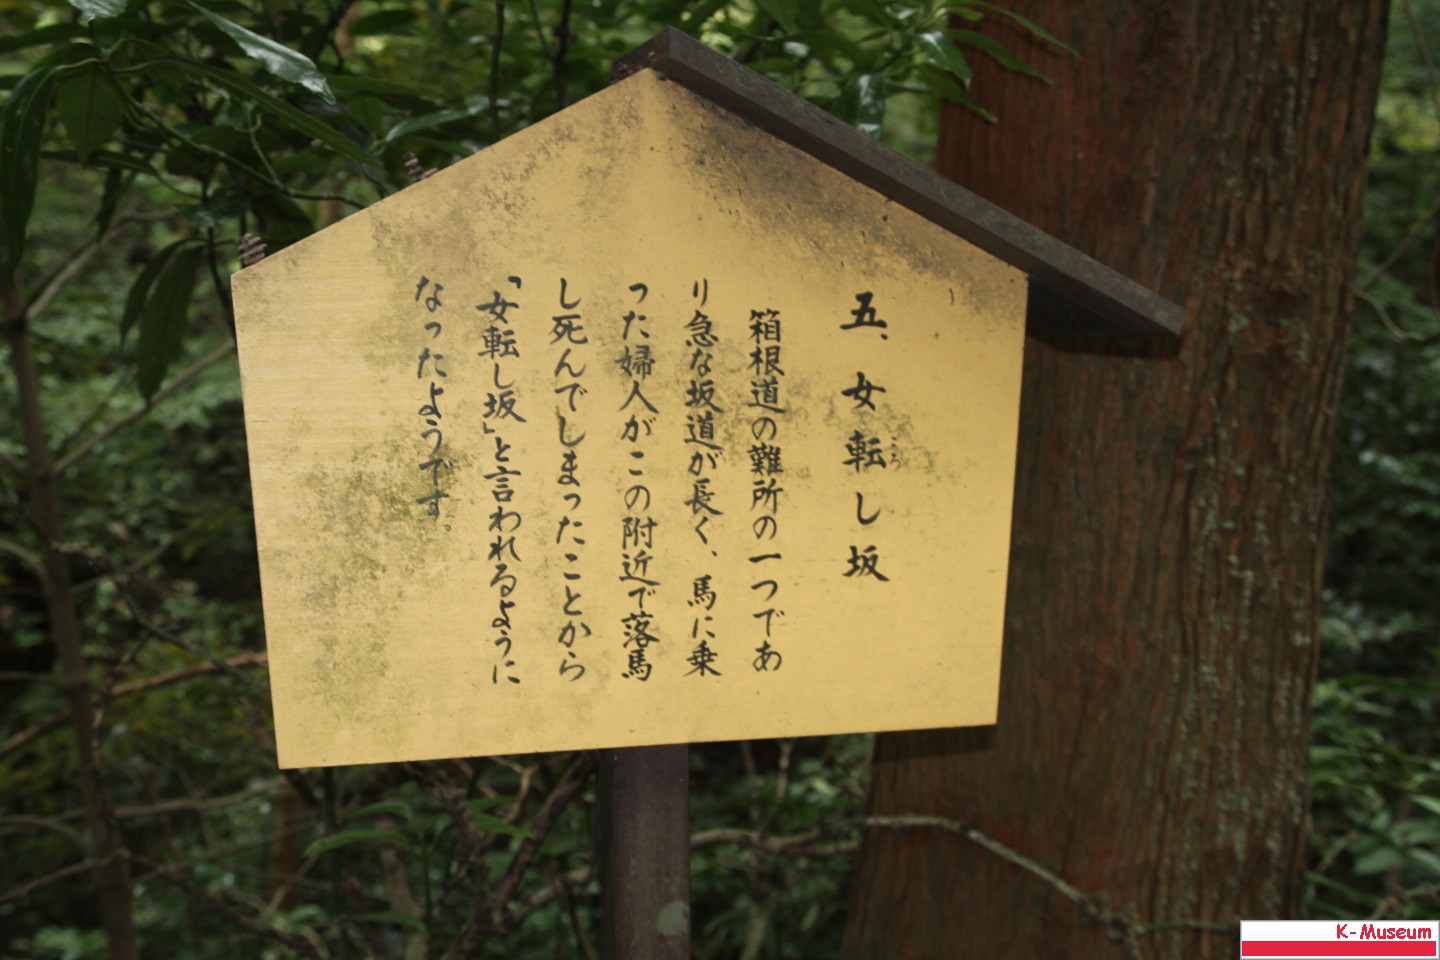 五、女転し坂
ころ
箱根道の難所の一つであ
り急な坂道が長く、馬に乗
った婦人がこの附近で落馬
し死んでしまったことから
「女転し坂」と言われるように
なったようです。
K-Museum